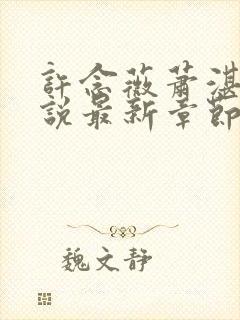 許念薇蕭湛
說最新章節
魏文靜